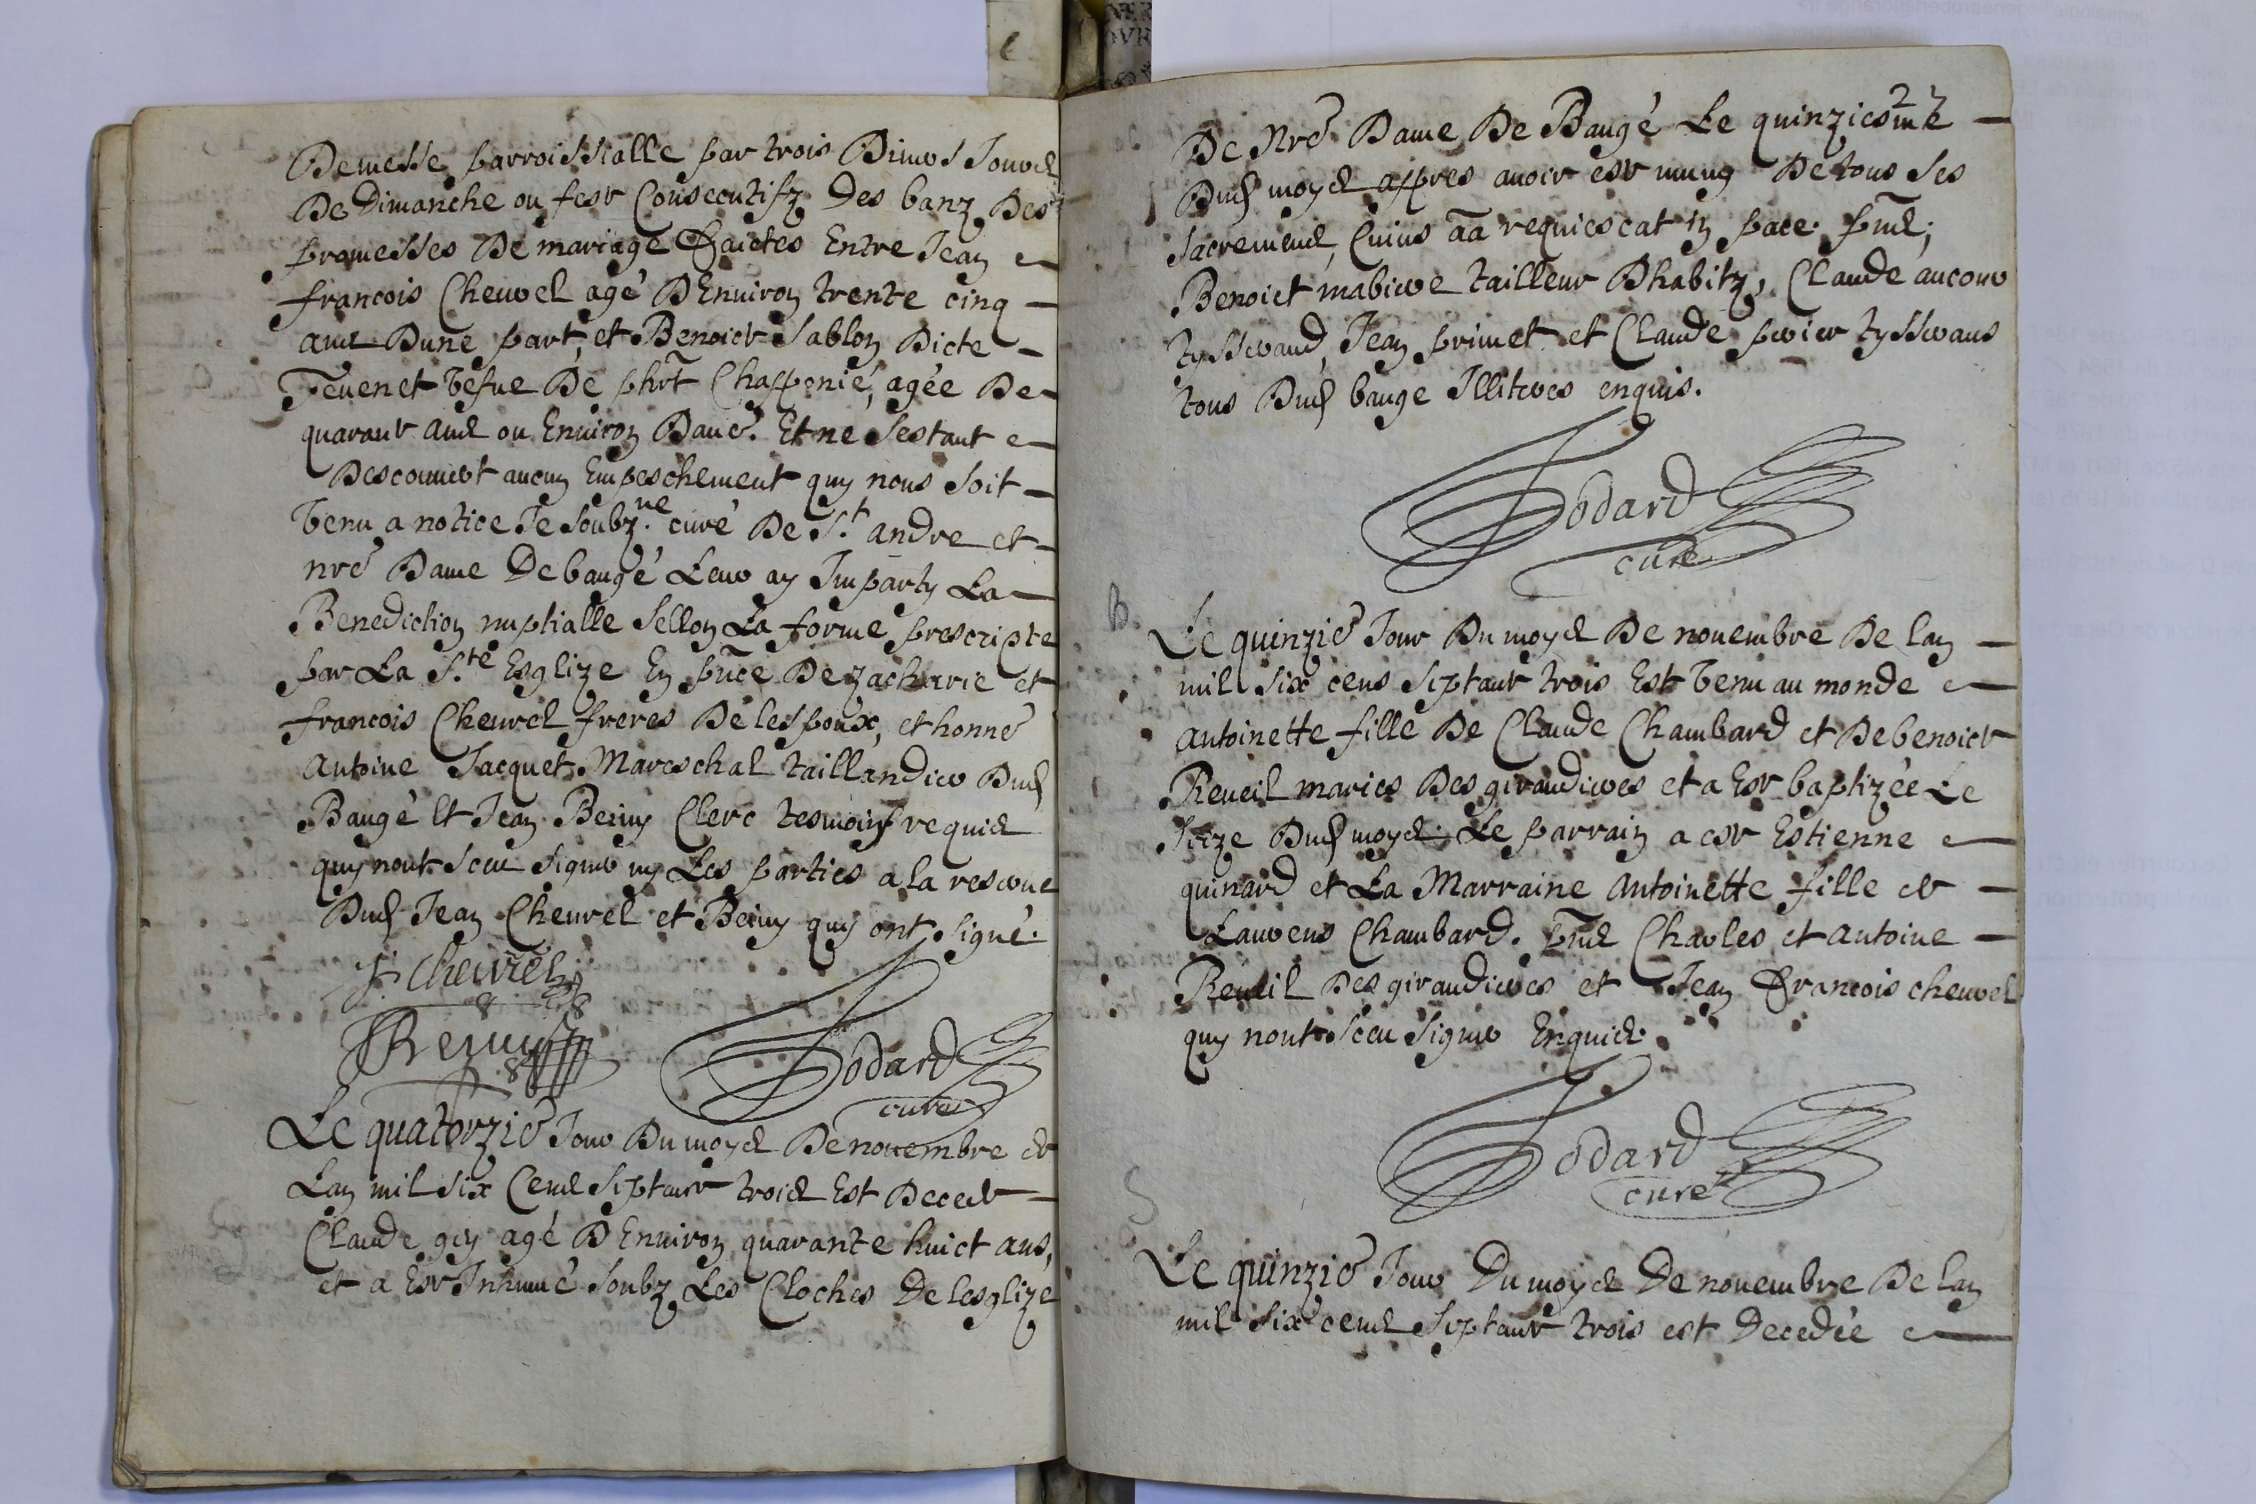 De messe parroissialle par trois divers Jours
De Dimanche ou feste Consecutifz Des banz Des
promesses De mariage Faictes Entre Jean
francois Cheuvrel agé DEnviron trente cinq
ans Dune part, et Benoicte Sablon Dicte
Tevenet vefve De phrt Chapponié, agée De
quarante ans ou Environ Dautre. Et ne sestant
Descouvert aucun Empeschement quy nous soit
venu a notice Je soubz.ne curé De St. andre et
nre Dame De baugé Leur ay Imparty La
Benediction nuptialle sellon La forme prescripte
par La Ste Esglize En pnce De zacharie et
francois Cheuvrel freres De lespoux, et honne
Antoine Jacquet Mareschal taillandier Dud
Baugé Et Jean Clerc tesmoins requis
quy nont sceu signer ny Les parties a la reserve
Dud Jean Cheuvrel et quy ont signé.
J. Cheuvrel
Godard
curé
Le quatorzie Jour Du moys De novembre de
Lan mil six Cens septante trois Est Decede
Claude guy agé DEnviron quarante huict ans,
et a Este Inhumé soubz Les Cloches De lesglize
22
De Nre Dame De Baugé Le quinziesme
Dud moys appres avoir este muny De tous ses
sacremens, Cuius aa requiescat in pace. pns,
Benoict tailleur Dhabitz, Claude
tyssérand, Jean primet et Claude tysserans
tous Dud bauge Illiteres enquis.
Godard
curé
B.
Le quinzie Jour Du moys De novembre De lan
mil six cens septante trois Est venu au monde
Antoinette fille De Claude Chambard et De benoicte
Reveil maries Des giraudieres et a Este baptizée Le
seize Dud moys. Le parrain a este Estienne
quinard et La Marraine Antoinette fille de
Laurens Chambard. pns Charles et Antoine
Reveil Des giraudieres et Jean Francois cheuvrel
quy nont sceu signer Enquis.
Godard
curé
S
Le quinzie Jour Du moys De novembre De lan
mil six cens septante trois est Decedée